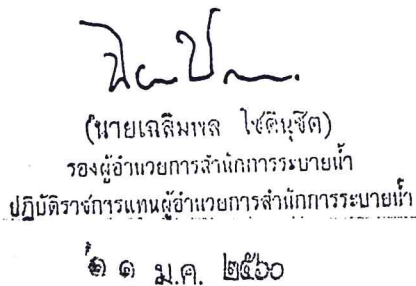 (นายเฉลิมพล โชตินุชิต)
รองผู้อำนวยการสำนักการระบายน้ำ
ปฏิบัติราชการแทนผู้อำนวยการสำนักการระบายน้ำ
๑ ๑ ม.ค. ๒๕๖๐